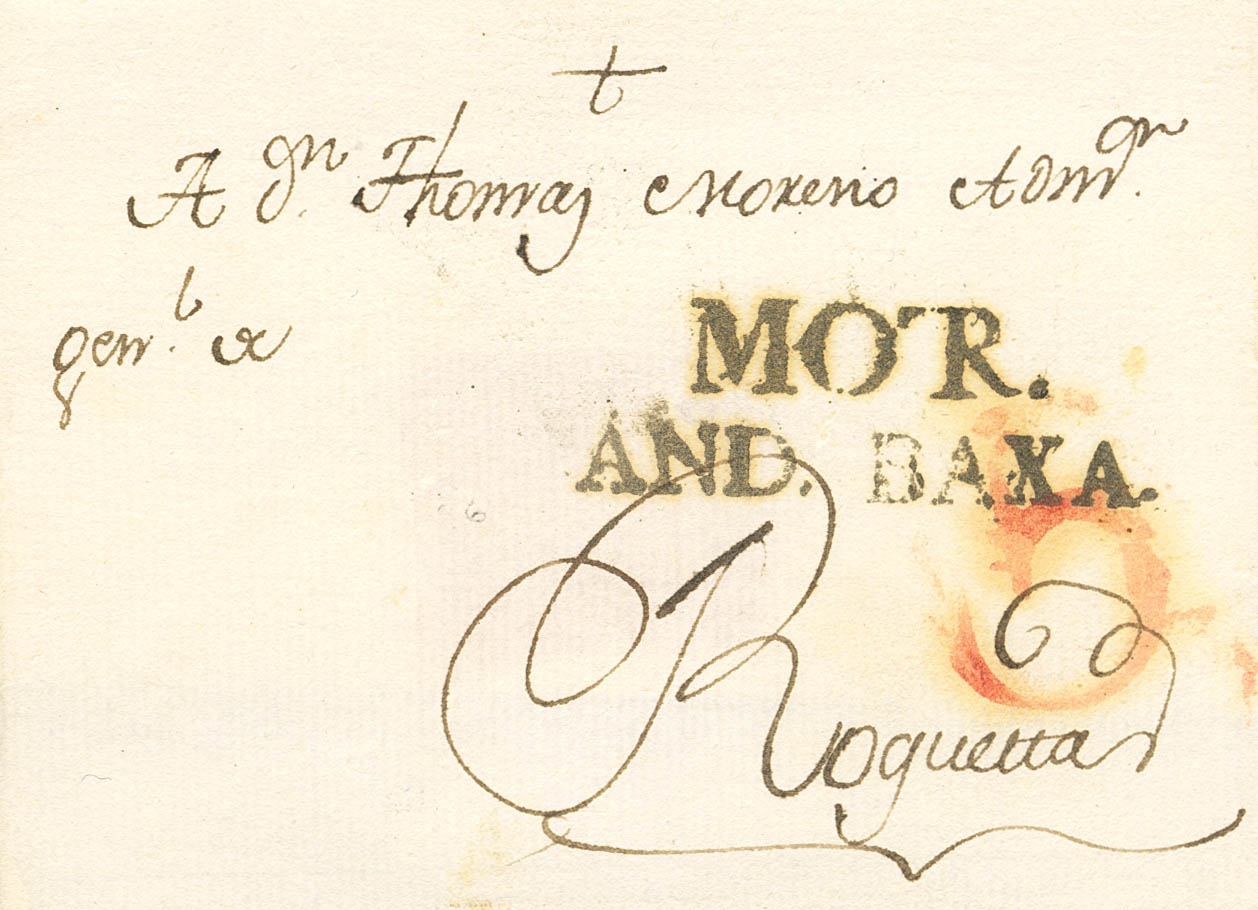 A Dn. Thomas Moreno Admor.
genl. de
MOR.
AND. BAXA.
6
Roquetas